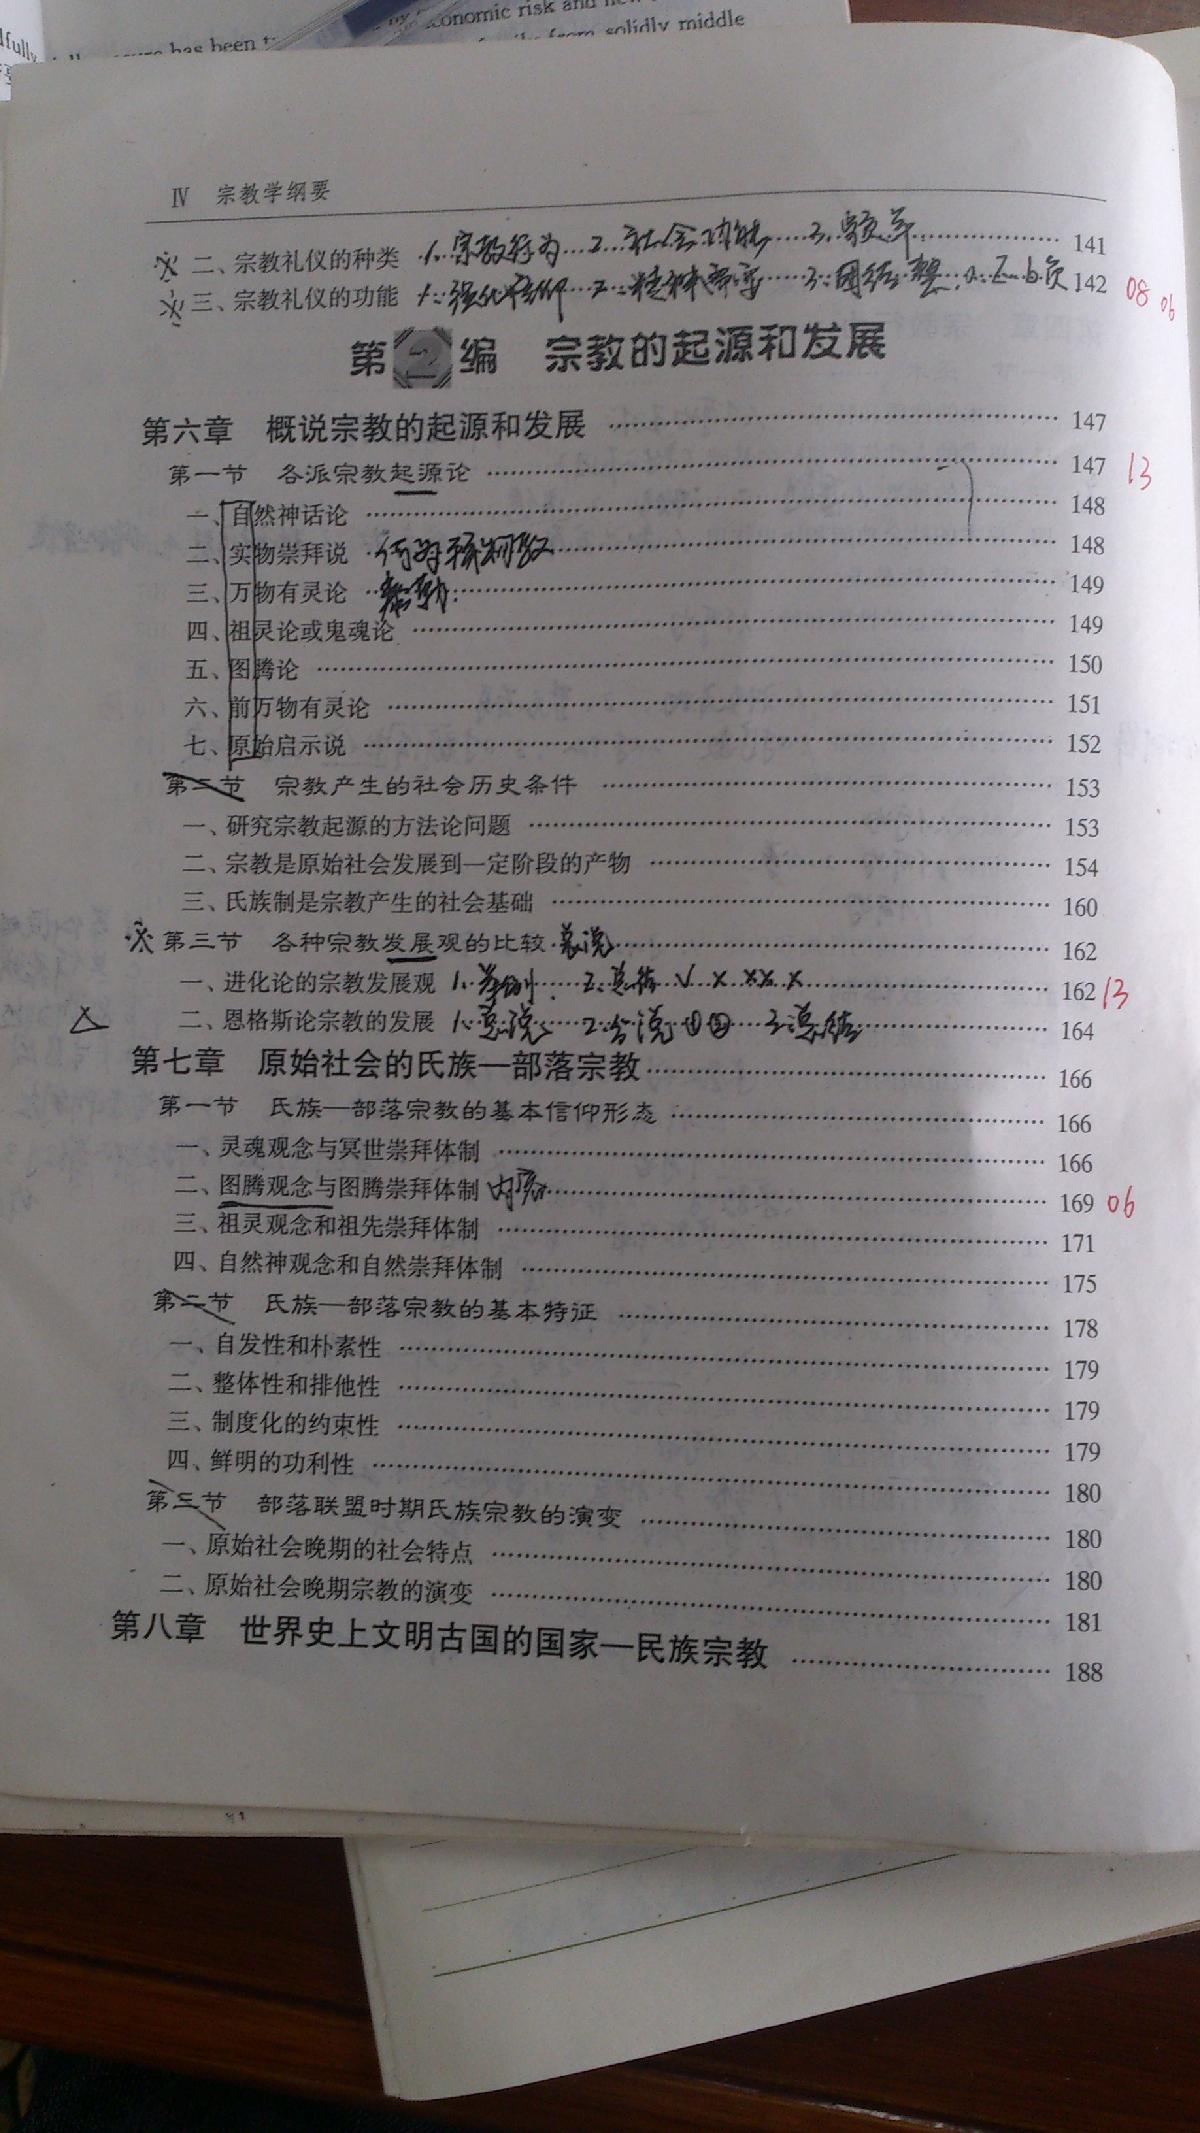 economic risk and new
has been
from solidly middle
IV 宗教学纲要
二、宗教礼仪的种类 1.宗教行为 2.社会功能 3. 141
三、宗教礼仪的功能 1.强化信仰 2.精神需要 3.团结整 142 08 06
第2编 宗教的起源和发展
第六章 概说宗教的起源和发展 147
第一节 各派宗教起源论 147 13
一、自然神话论 148
二、实物崇拜说 148
三、万物有灵论 泰勒 149
四、祖灵论或鬼魂论 149
五、图腾论 150
六、前万物有灵论 151
七、原始启示说 152
第二节 宗教产生的社会历史条件 153
一、研究宗教起源的方法论问题 153
二、宗教是原始社会发展到一定阶段的产物 154
三、氏族制是宗教产生的社会基础 160
※ 第三节 各种宗教发展观的比较 总说 162
一、进化论的宗教发展观 1.举例 2.总结 √ × ×× × 162 13
△ 二、恩格斯论宗教的发展 1.总说 2.分说 3.总结 164
第七章 原始社会的氏族—部落宗教 166
第一节 氏族—部落宗教的基本信仰形态 166
一、灵魂观念与冥世崇拜体制 166
二、图腾观念与图腾崇拜体制 内容 169 06
三、祖灵观念和祖先崇拜体制 171
四、自然神观念和自然崇拜体制 175
第二节 氏族—部落宗教的基本特征 178
一、自发性和朴素性 179
二、整体性和排他性 179
三、制度化的约束性 179
四、鲜明的功利性 180
第三节 部落联盟时期氏族宗教的演变 180
一、原始社会晚期的社会特点 180
二、原始社会晚期宗教的演变 181
第八章 世界史上文明古国的国家—民族宗教 188